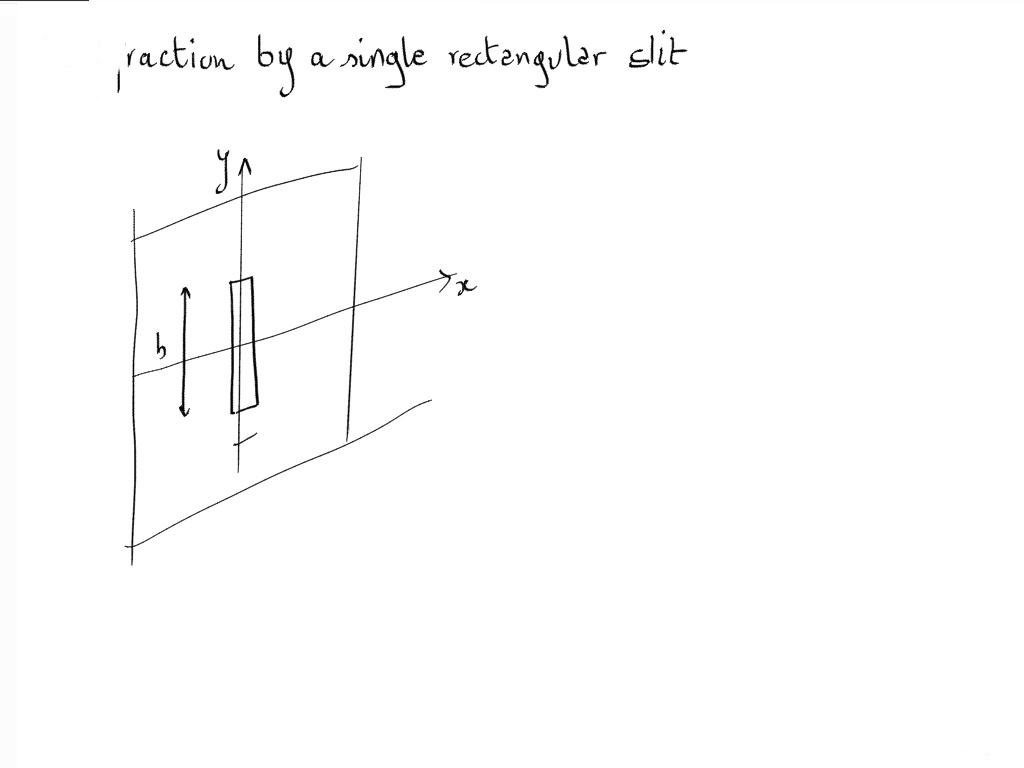 raction by a single rectangular slit
y
x
b